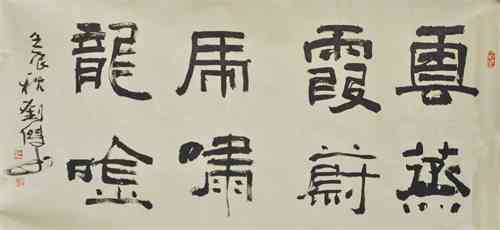 雲蒸
霞蔚
虎嘯
龍唫
壬辰秋劉